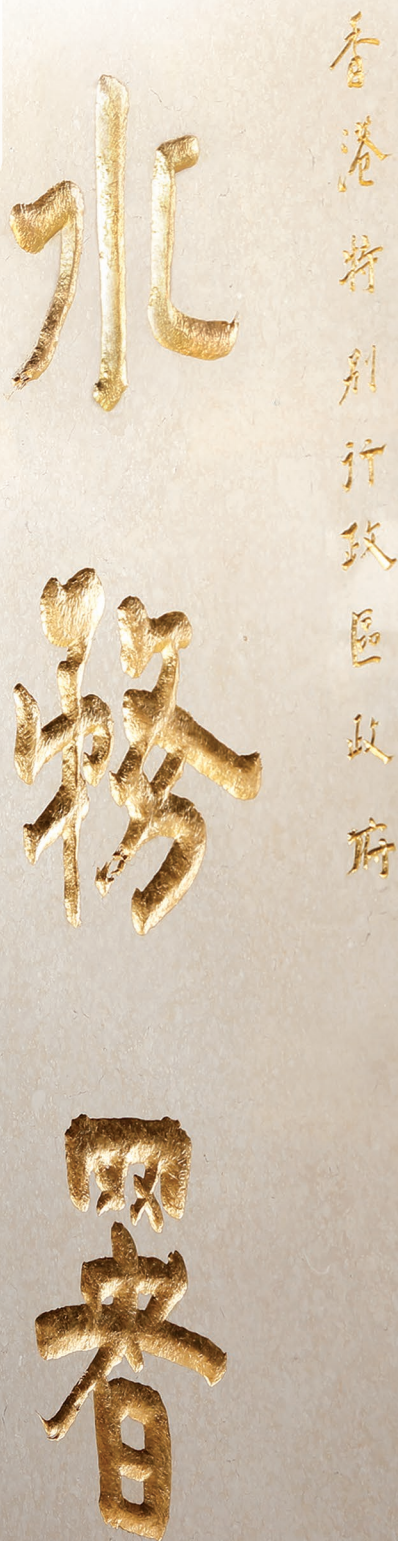 香港特別行政區政府
水務署